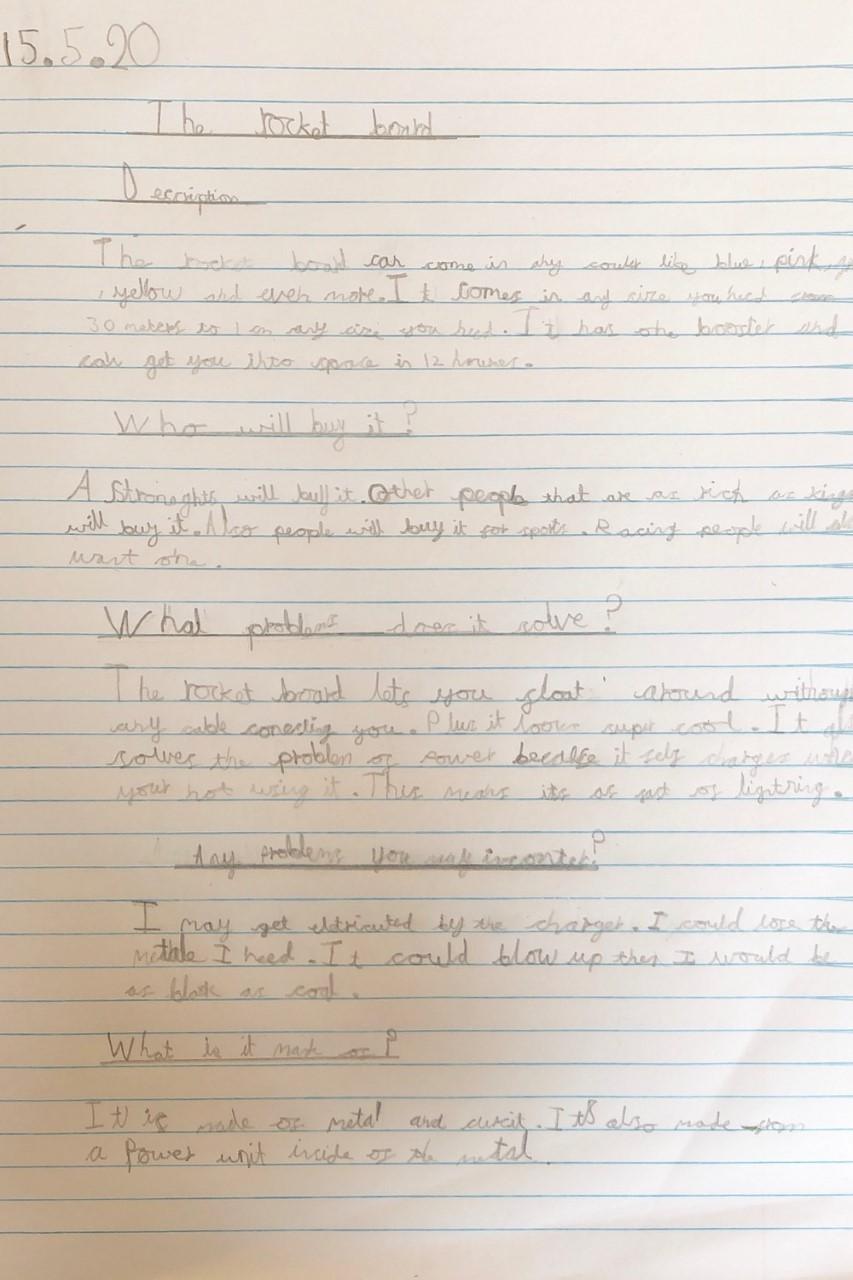 15.5.20
The rocket board
Description
The rocket board can come in any couler like blue, pink,
, yellow and even more. It comes in any size you need from
30 meters to 1 cm any size you need. It has one booster and
can get you into space in 12 houres.
Who will buy it?
A Stronaghts will buy it. Other people that are as rich as kings
will buy it. Also people will buy it for spots. Racing people will
want one.
What problems does it solve?
The rocket board lets you float around without
any cable conecting you. Plus it looks super cool. It
solves the problem of power because it self charges when
your not using it. This means its as fast as lightning.
Any problems you may inconter?
I may get eltricuted by the charger. I could lose the
mettale I need. It could blow up then I would be
as black as coal.
What is it made of?
It is made of metal and circit. It's also made from
a Power unit incide of the metal